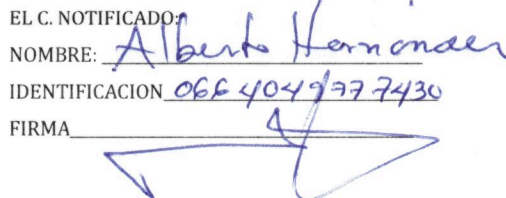 EL C. NOTIFICADO:
NOMBRE: Alberto Hernández
IDENTIFICACION 0664049777430
FIRMA